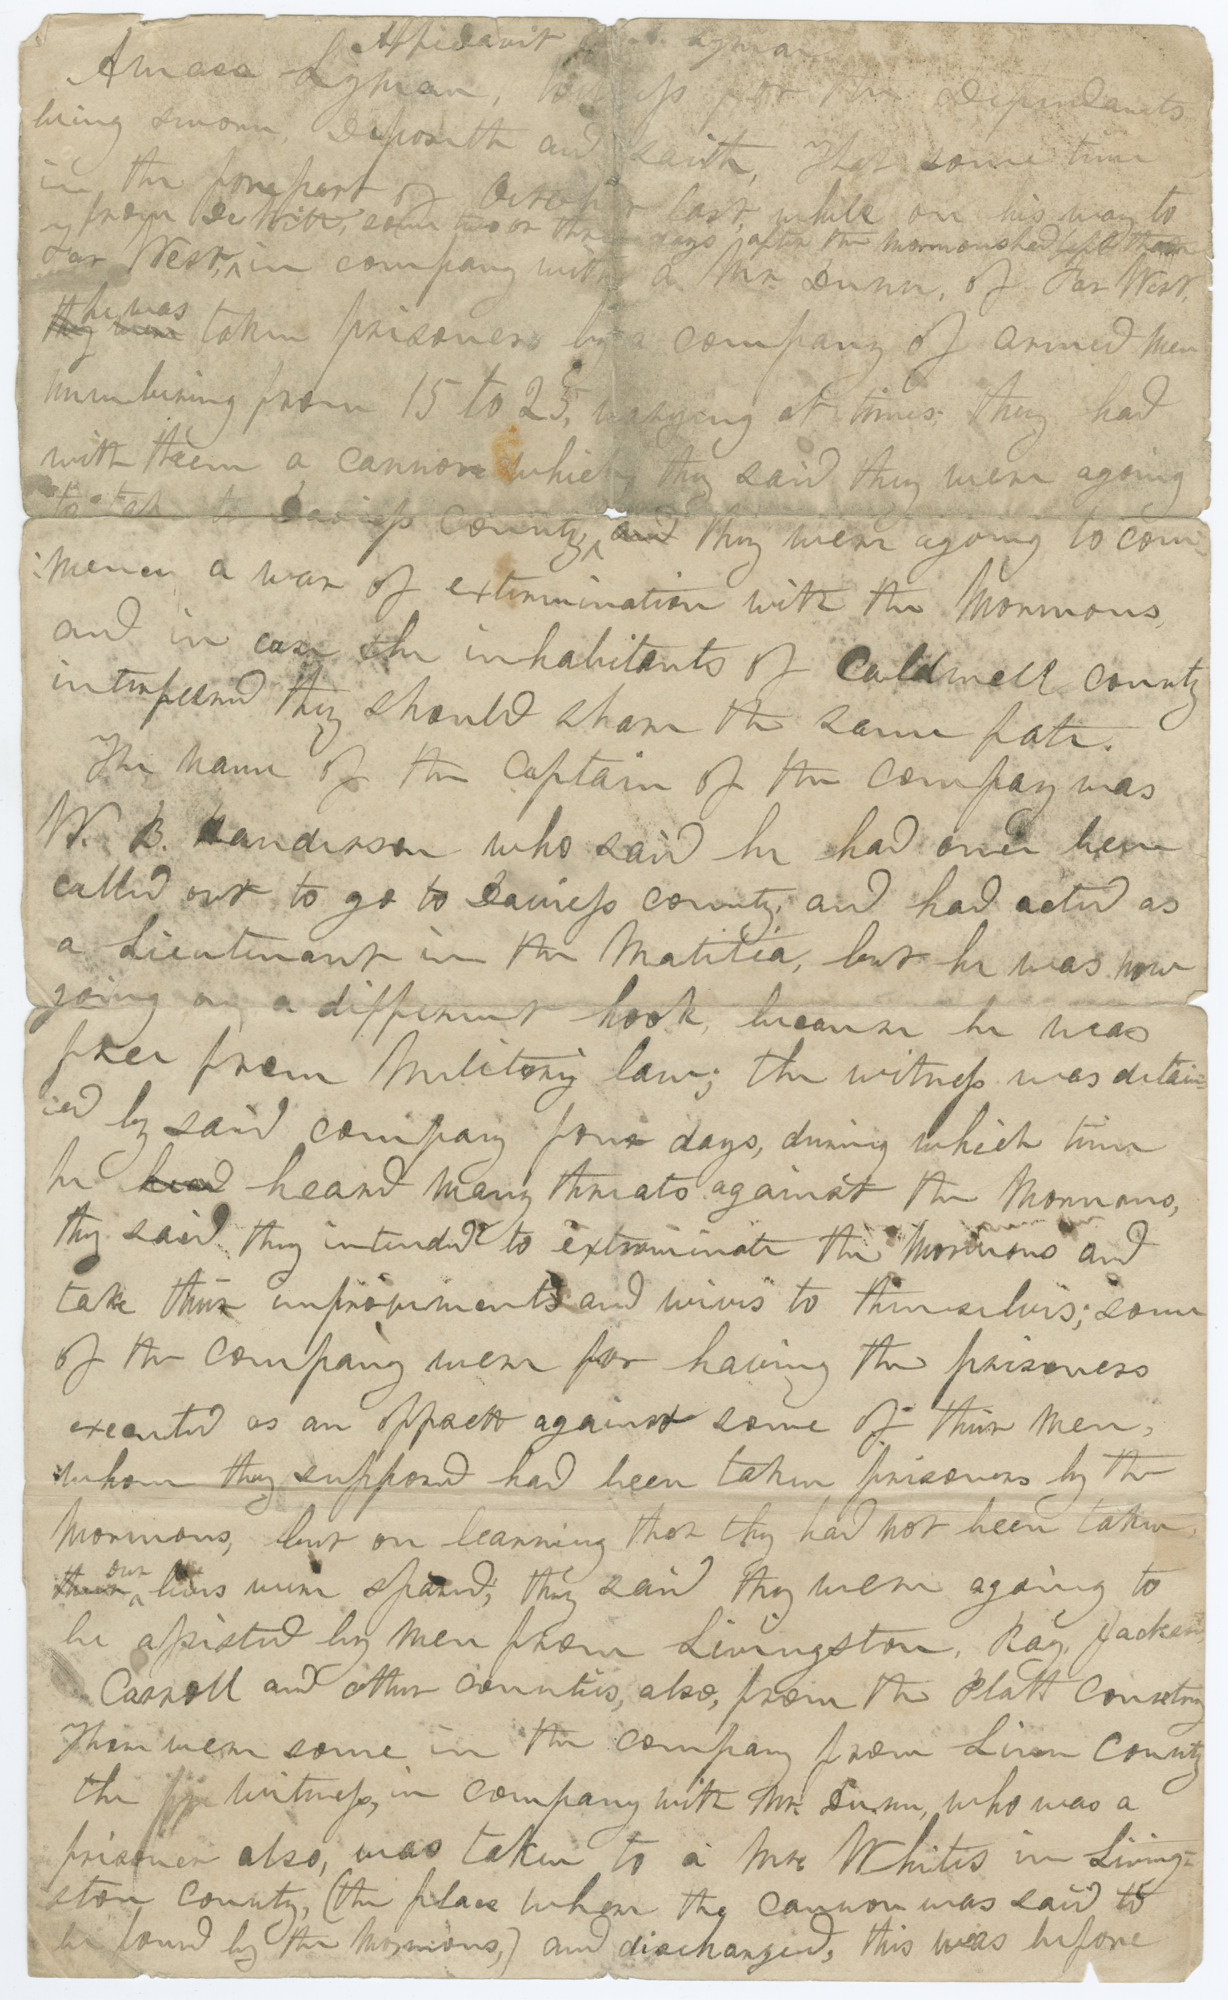 Affidavit Lyman
Amasa Lyman, witness for the Defendants
being sworn, Deposeth and saith, That some time
in the forepart of October last, while on his way to
from De Witt, some two or three days after the mormons had left there
Far West, ^ in company with a Mr. Dunn, of Far West,
he was
they were taken prisoners by a company of armed men
numbering from 15 to 25, varying at times; they had
with them a cannon which they said they were agoing
to take to Daviess county, ^ and they were agoing to com
mence a war of extermination with the Mormons,
and in case the inhabitants of Caldwell county
interfered they should share the same fate.
The name of the Captain of the company was
W. B. Handerson who said he had once been
called out to go to Daviess county, and had acted as
a Lieutenant in the Malitia, but he was now
going on a different hook, because he was
free from Militery law; the witness was detain
ied by said company four days, during which time
he head heard many threats against the Mormons,
they said they intended to exterminate the Mormons and
take their improvments and wives to themselves; some
of the company were for having the prisoners
executed as an offsett against some of their men,
whom they supposed had been taken prisoners by the
Mormons, but on learning that they had not been taken
our
their ^ lives were spared; they said they were agoing to
be assisted by men from Livingston, Ray, Jackson,
Carroll and other counties, also, from the Platt Country
There were some in the company from Linn County
the witness, in company with Mr. Dunn, who was a
prisoner also, was taken to a Mr. Whites in Living=
ston county, (the place where the cannon was said to
be found by the Mormons,) and discharged, this was before